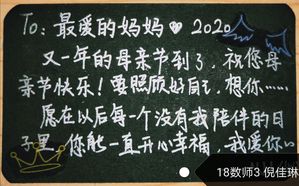 To: 最爱的妈妈❤ 2020
又一年的母亲节到了, 祝您母
亲节快乐! 要照顾好自己, 想你……
愿在以后每一个没有我陪伴的日
子里, 您能一直开心幸福, 我爱你
18数师3 倪佳琳